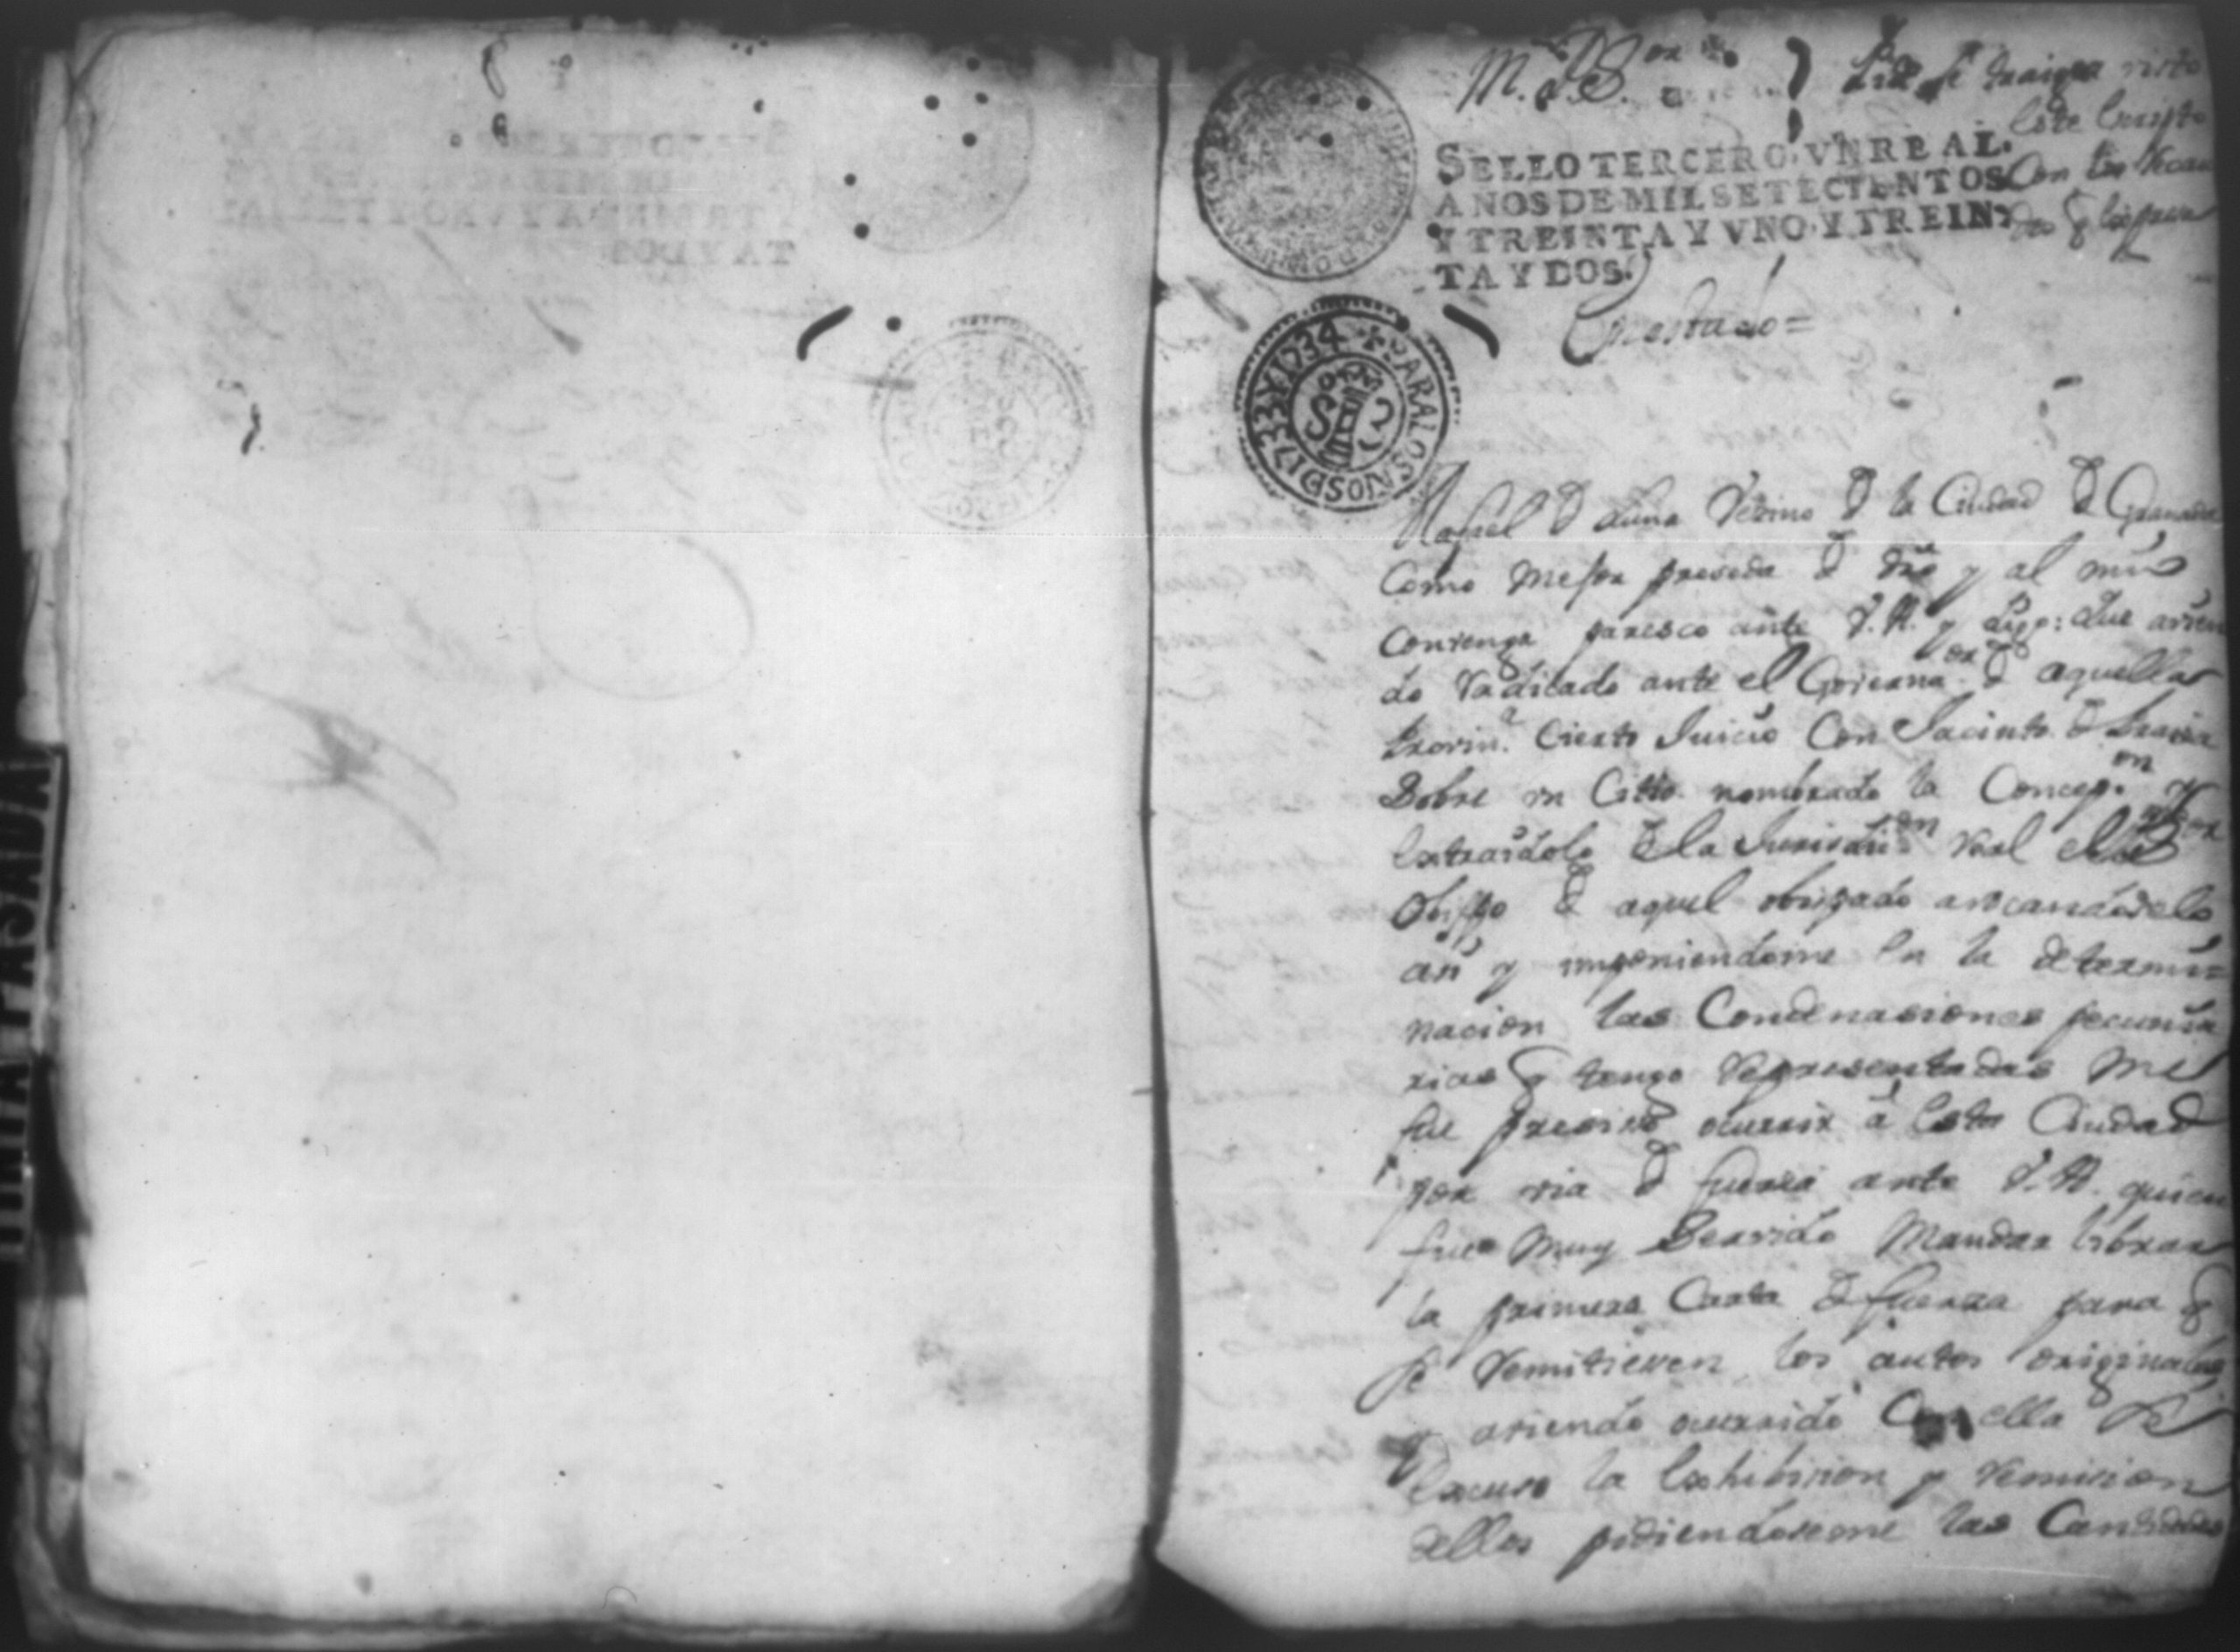 M. P. S.or
SELLO TERCERO, VN REAL,
AÑOS DE MIL SETECIENTOS
Y TREINTA Y VNO, Y TREIN-
TA Y DOS.
se traiga visto
este escripto
Con los
PARALOSAÑOSD1733YD1734
Rafael de Luna Vezino de la Ciudad de Granada
Como mejor proseda de dro y al mio
Contenga paresco ante V.A. y digo: Que avien
do Radicado ante el Governa.or de aquella
Provin.a Cierto Juicio Con Jacinto de
Sobre un Citio nombrado la Concep.on y
extraidole de la Jurisdi.on Real el
Obispo de aquel obispado avocandoselo
asi y imponiendome en la determi=
nacion las Condenasiones pecunia
rias q tengo Representadas me
fue presiso ocurrir á esta Ciudad
por via de fuerza ante V.A. quien
fue muy Servido Mandar librar
la primera Carta de fuerza para q
se Remitiesen los autos originales
y aviendo ocurrido Con ella se
Escuso la Exhibision y Remision
dellos pidiendoseme las Cantidades